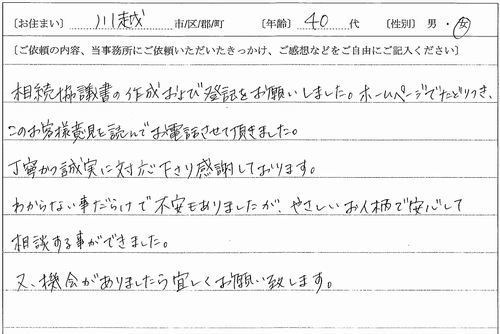 〔お住まい〕 川越 市/区/郡/町 〔年齢〕 40 代 〔性別〕 男・女
〔ご依頼の内容、当事務所にご依頼いただいたきっかけ、ご感想などをご自由にご記入ください〕
相続協議書の作成および登記をお願いしました。ホームページでたどりつき、
このお客様意見を読んでお電話させて頂きました。
丁寧かつ誠実に対応下さり感謝しております。
わからない事だらけで不安もありましたが、やさしいお人柄で安心して
相談する事ができました。
又、機会がありましたら宜しくお願い致します。